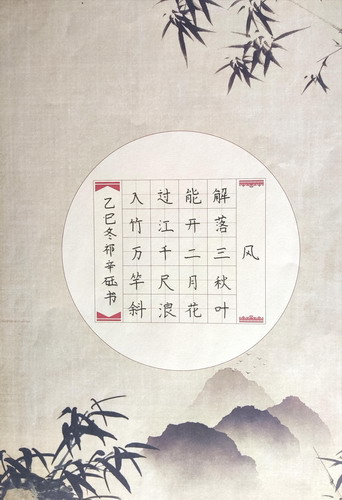 风
解落三秋叶
能开二月花
过江千尺浪
入竹万竿斜
乙巳冬祁辛砡书